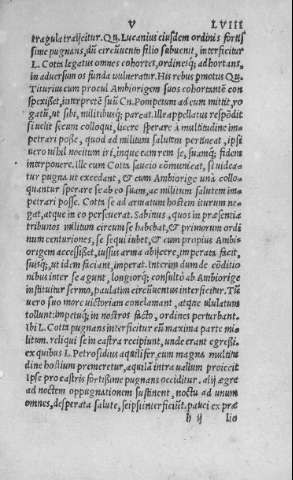 V LVIII
tragula traijcitur. Q. Lucanius eiusdem ordinis fortis
sime pugnans, dū circūuento filio subuenit, interficitur
L. Cotta legatus omnes cohortes, ordinesq; adhortans,
in aduersum os funda uulneratur. His rebus pmotus Q.
Titurius cum procul Ambiorigem suos cohortantē con
spexisset, interpretē suū Cn. Pompeium ad eum mittit, ro
gatū, ut sibi, militibusq; parcat. Ille appellatus respōdit
si uelit secum colloqui, licere sperare à multitudine im
petrari posse, quod ad militum salutem pertineat, ipsi
uero nihil nocitum iri, inque eam rem se, suamq; fidem
interponere. Ille cum Cotta saucio cōmunicat, si uidea
tur pugna ut excedant, & cum Ambiorige unà collo
quantur sperare se ab eo suam, ac militum salutem im
petrari posse. Cotta se ad armatum hostem iturum ne
gat, atque in eo perseuerat. Sabinus, quos in præsentia
tribunos militum circum se habebat, & primorum ordi
num centuriones, se sequi iubet, & cum propius Ambi
origem accessisset, iussus arma abijcere, imperata facit,
suisq; ut idem faciant, imperat. Interim dum de cōditio
nibus inter se agunt, longiorq; consultò ab Ambiorige
instituitur sermo, paulatim circūuentus interficitur. Tū
uero suo more uictoriam conclamant, atque ululatum
tollunt: impetuq; in nostros facto, ordines perturbant.
Ibi L. Cotta pugnans interficitur cū maxima parte mi
litum. reliqui se in castra recipiunt, unde erant egressi.
ex quibus L. Petrosidius aquilifer cum magna multitu
dine hostium premeretur, aquilā intra uallum proiecit
ipse pro castris fortissime pugnans occiditur. alij ægre
ad noctem oppugnationem sustinent, noctu ad unum
omnes, desperata salute, se ipsi interficiūt. pauci ex præ
h ij lio